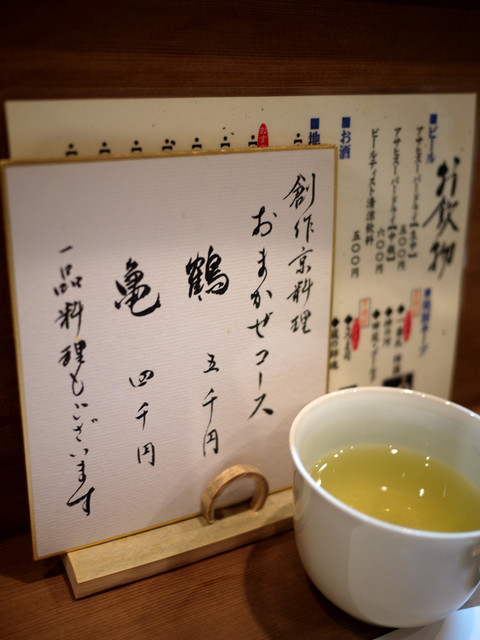 創作京料理
おまかせコース
鶴 五千円
亀 四千円
一品料理もございます
お飲物
■ビール
アサヒスーパードライ【生中】
五〇〇円
アサヒスーパードライ【中瓶】
六〇〇円
ビールテイスト清涼飲料
五〇〇円
■お酒
■地